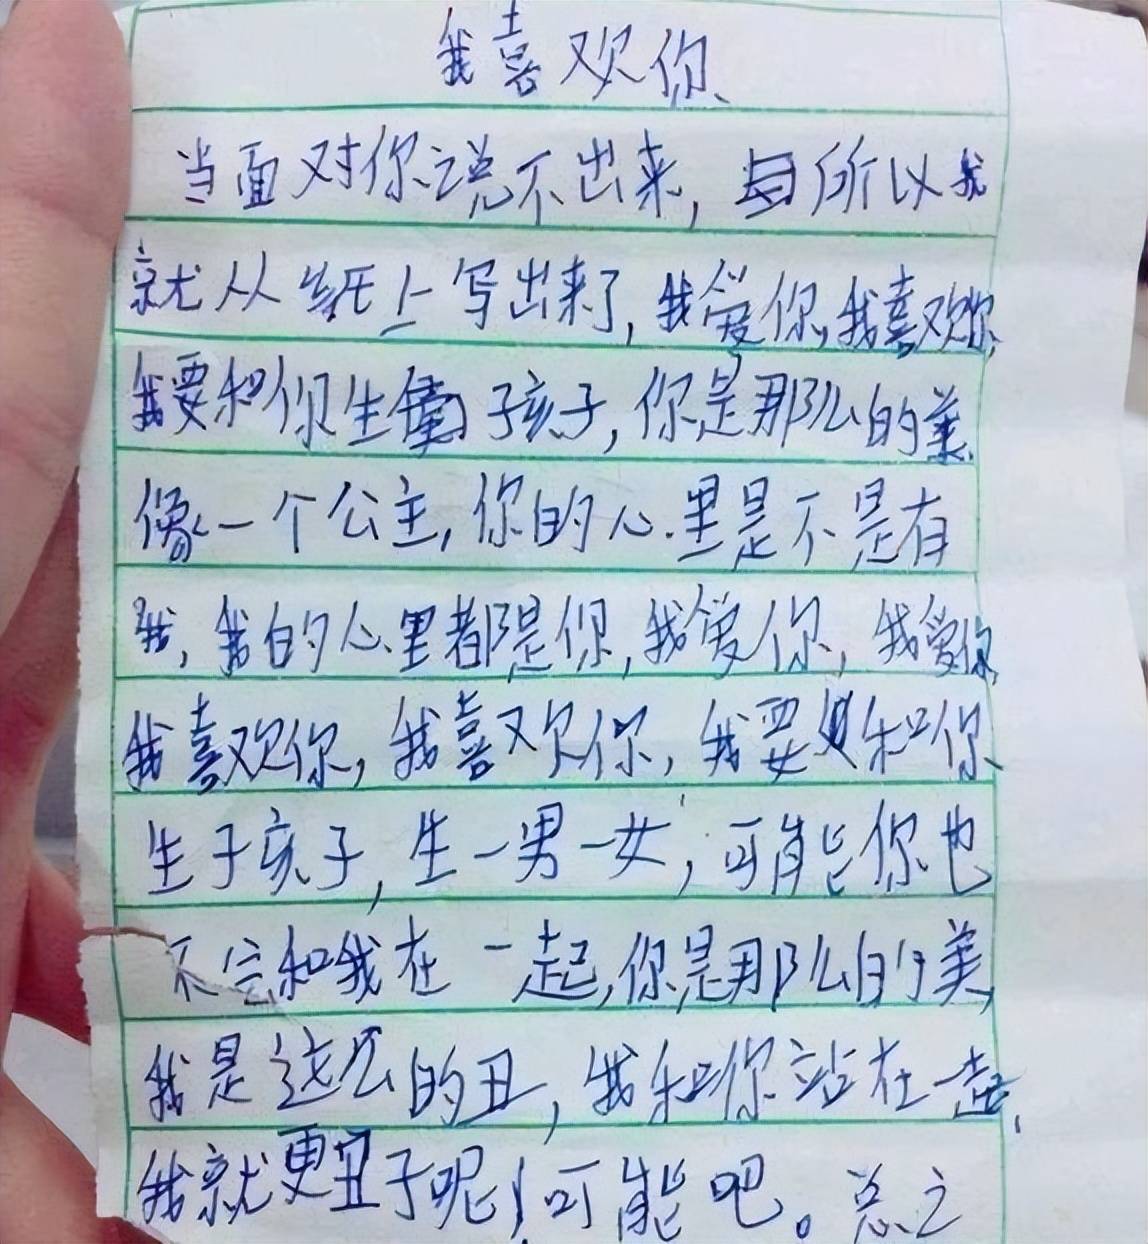 我喜欢你
当面对你说不出来,所以我
就从纸上写出来了,我爱你,我喜欢你,
我要和你生 子孩子,你是那么的美
像一个公主,你的心里是不是有
我,我的心里都是你,我爱你,我爱你
我喜欢你,我喜欢你,我要和你
生子孩子,生一男一女,可能你也
不会和我在一起,你是那么的美,
我是这么的丑,我和你站在一起,
我就更丑了呢!可能吧。总之